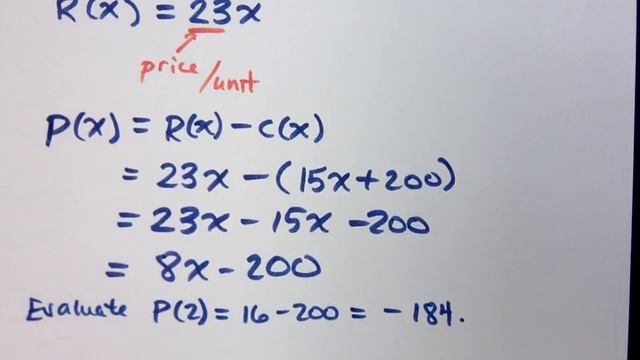 R(x) = 23x
price/unit
P(x) = R(x) - C(x)
= 23x - (15x + 200)
= 23x - 15x - 200
= 8x - 200
Evaluate P(2) = 16 - 200 = - 184.